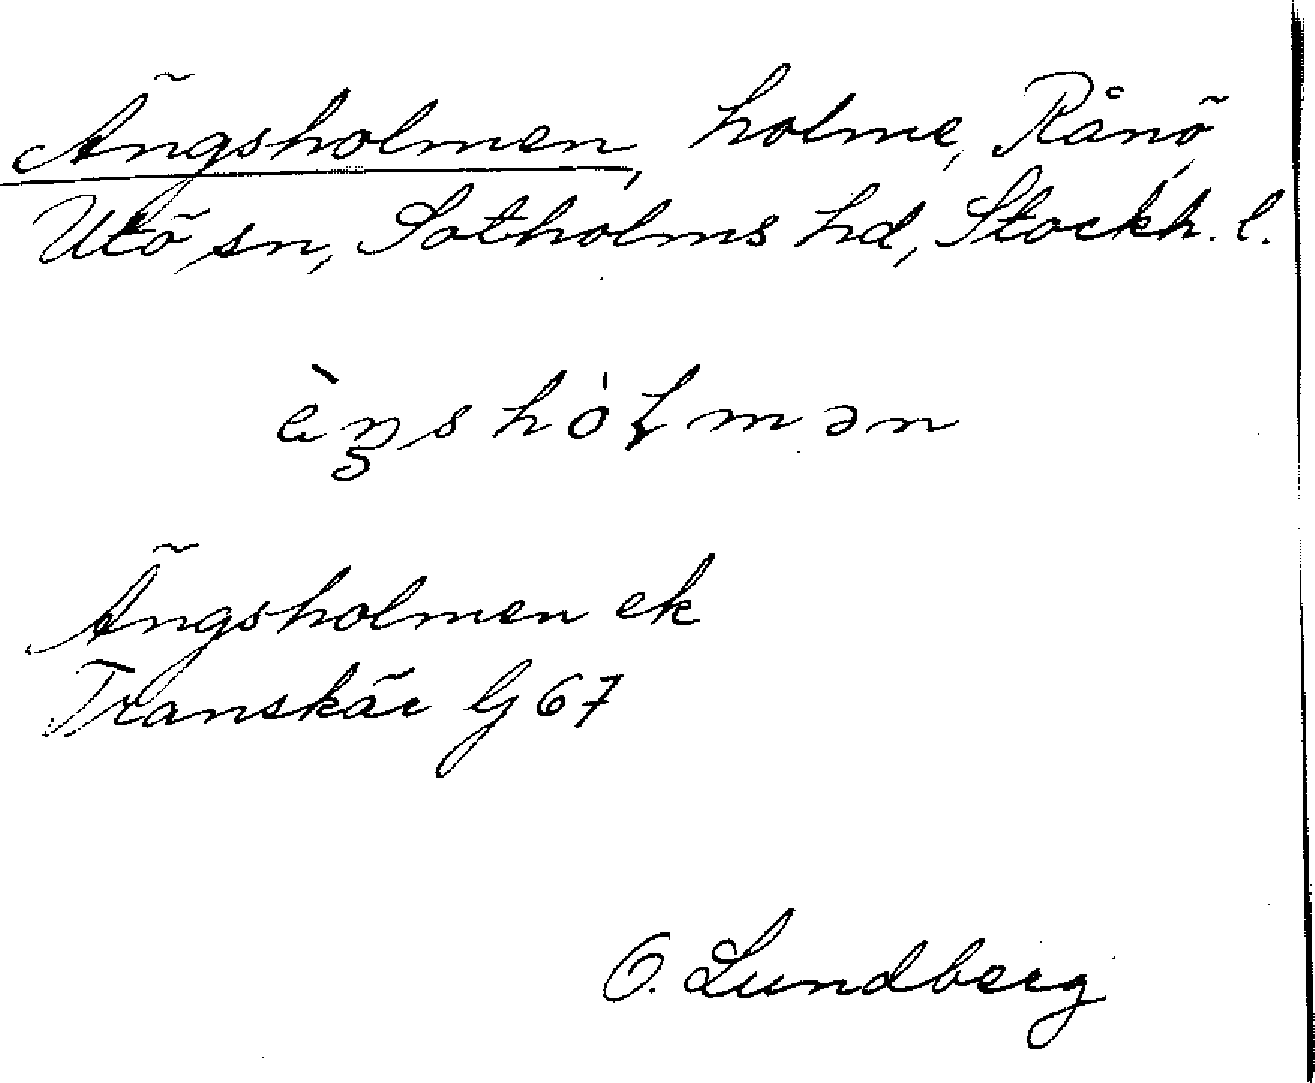 Ängsholmen, holme, Rånö,
Utö sn, Sotholms hd, Stockh. l.
èŋshòɫmən
Ängsholmen ek
Transkär G 67
O. Lundberg